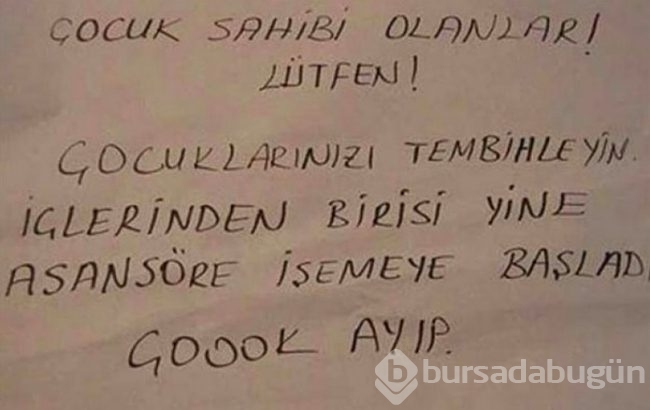 ÇOCUK SAHİBİ OLANLAR!
LÜTFEN!
ÇOCUKLARINIZI TEMBİHLEYİN.
İÇLERİNDEN BİRİSİ YİNE
ASANSÖRE İŞEMEYE BAŞLAD
ÇOOOK AYIP.
b bursadabugün